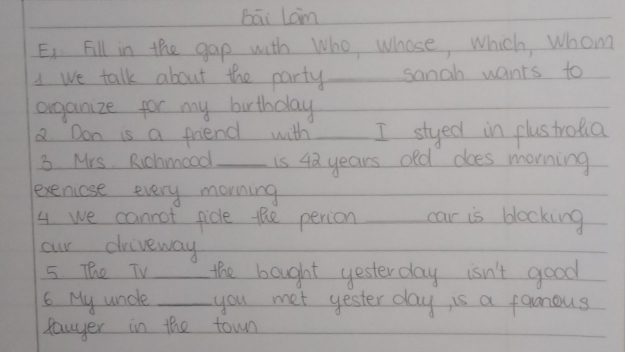 Bài làm
E1 Fill in the gap with who, whose, which, whom
1 We talk about the party ____ sarah wants to
organize for my birthday
2 Don is a friend with ____ I styed in Australia
3 Mrs Richmood ____ is 42 years old does morning
exenicse every morning
4 we cannot fide the person ____ car is blocking
our driveway
5 The TV ____ the bought yesterday isn't good
6 My uncle ____ you met yester day, is a famous
lawyer in the town